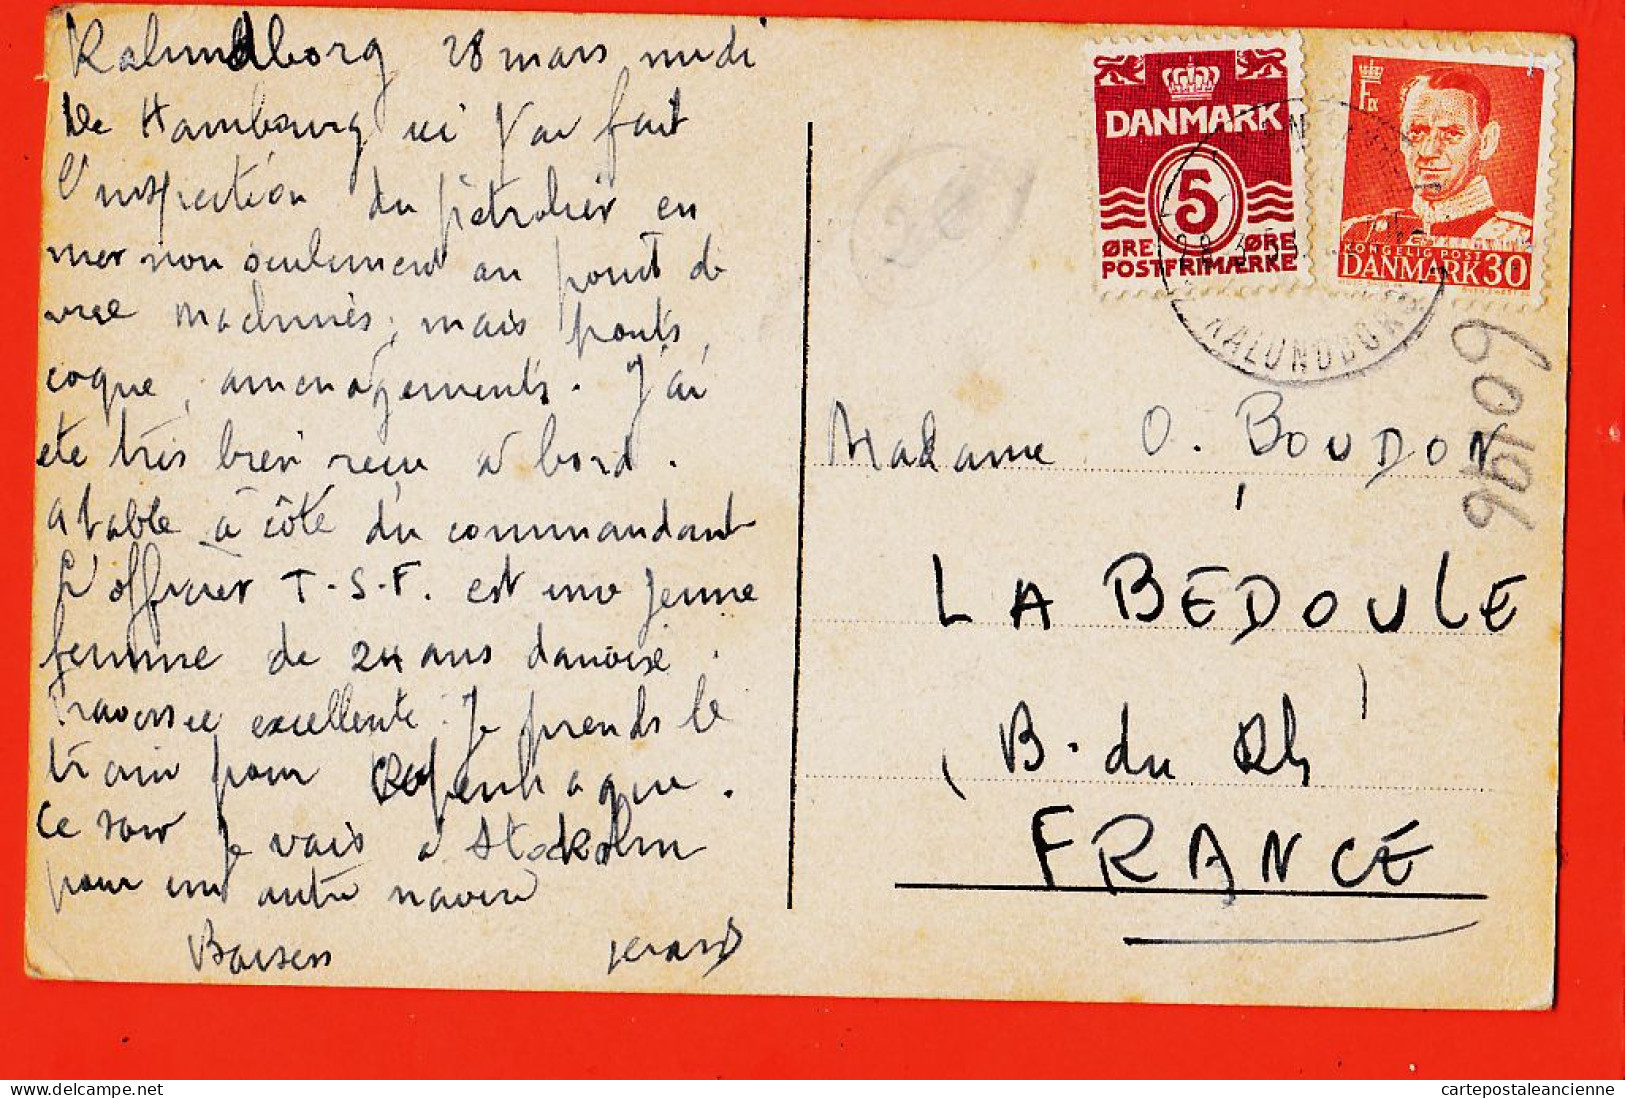 Kalundborg 28 mars midi
De Hambourg ici j'ai fait
l'inspection du pétrolier en
mer non seulement au point de
vue machines, mais ponts,
coque, amenagements. J'ai
été très bien reçu à bord.
A table à côté du commandant
L'officier T.S.F. est une jeune
femme de 24 ans danoise.
Traversée excellente. Je prends le
train pour Copenhague.
Ce soir je vais à Stockolm
pour un autre navire
Baisers Gerard
DANMARK
5
ØRE ØRE
POSTFRIMÆRKE
KONGELIG POST
DANMARK 30
KALUNDBORG
Madame O. BOUDON
LA BEDOULE
B. du Rh
FRANCE
60196
cartepostaleancienne